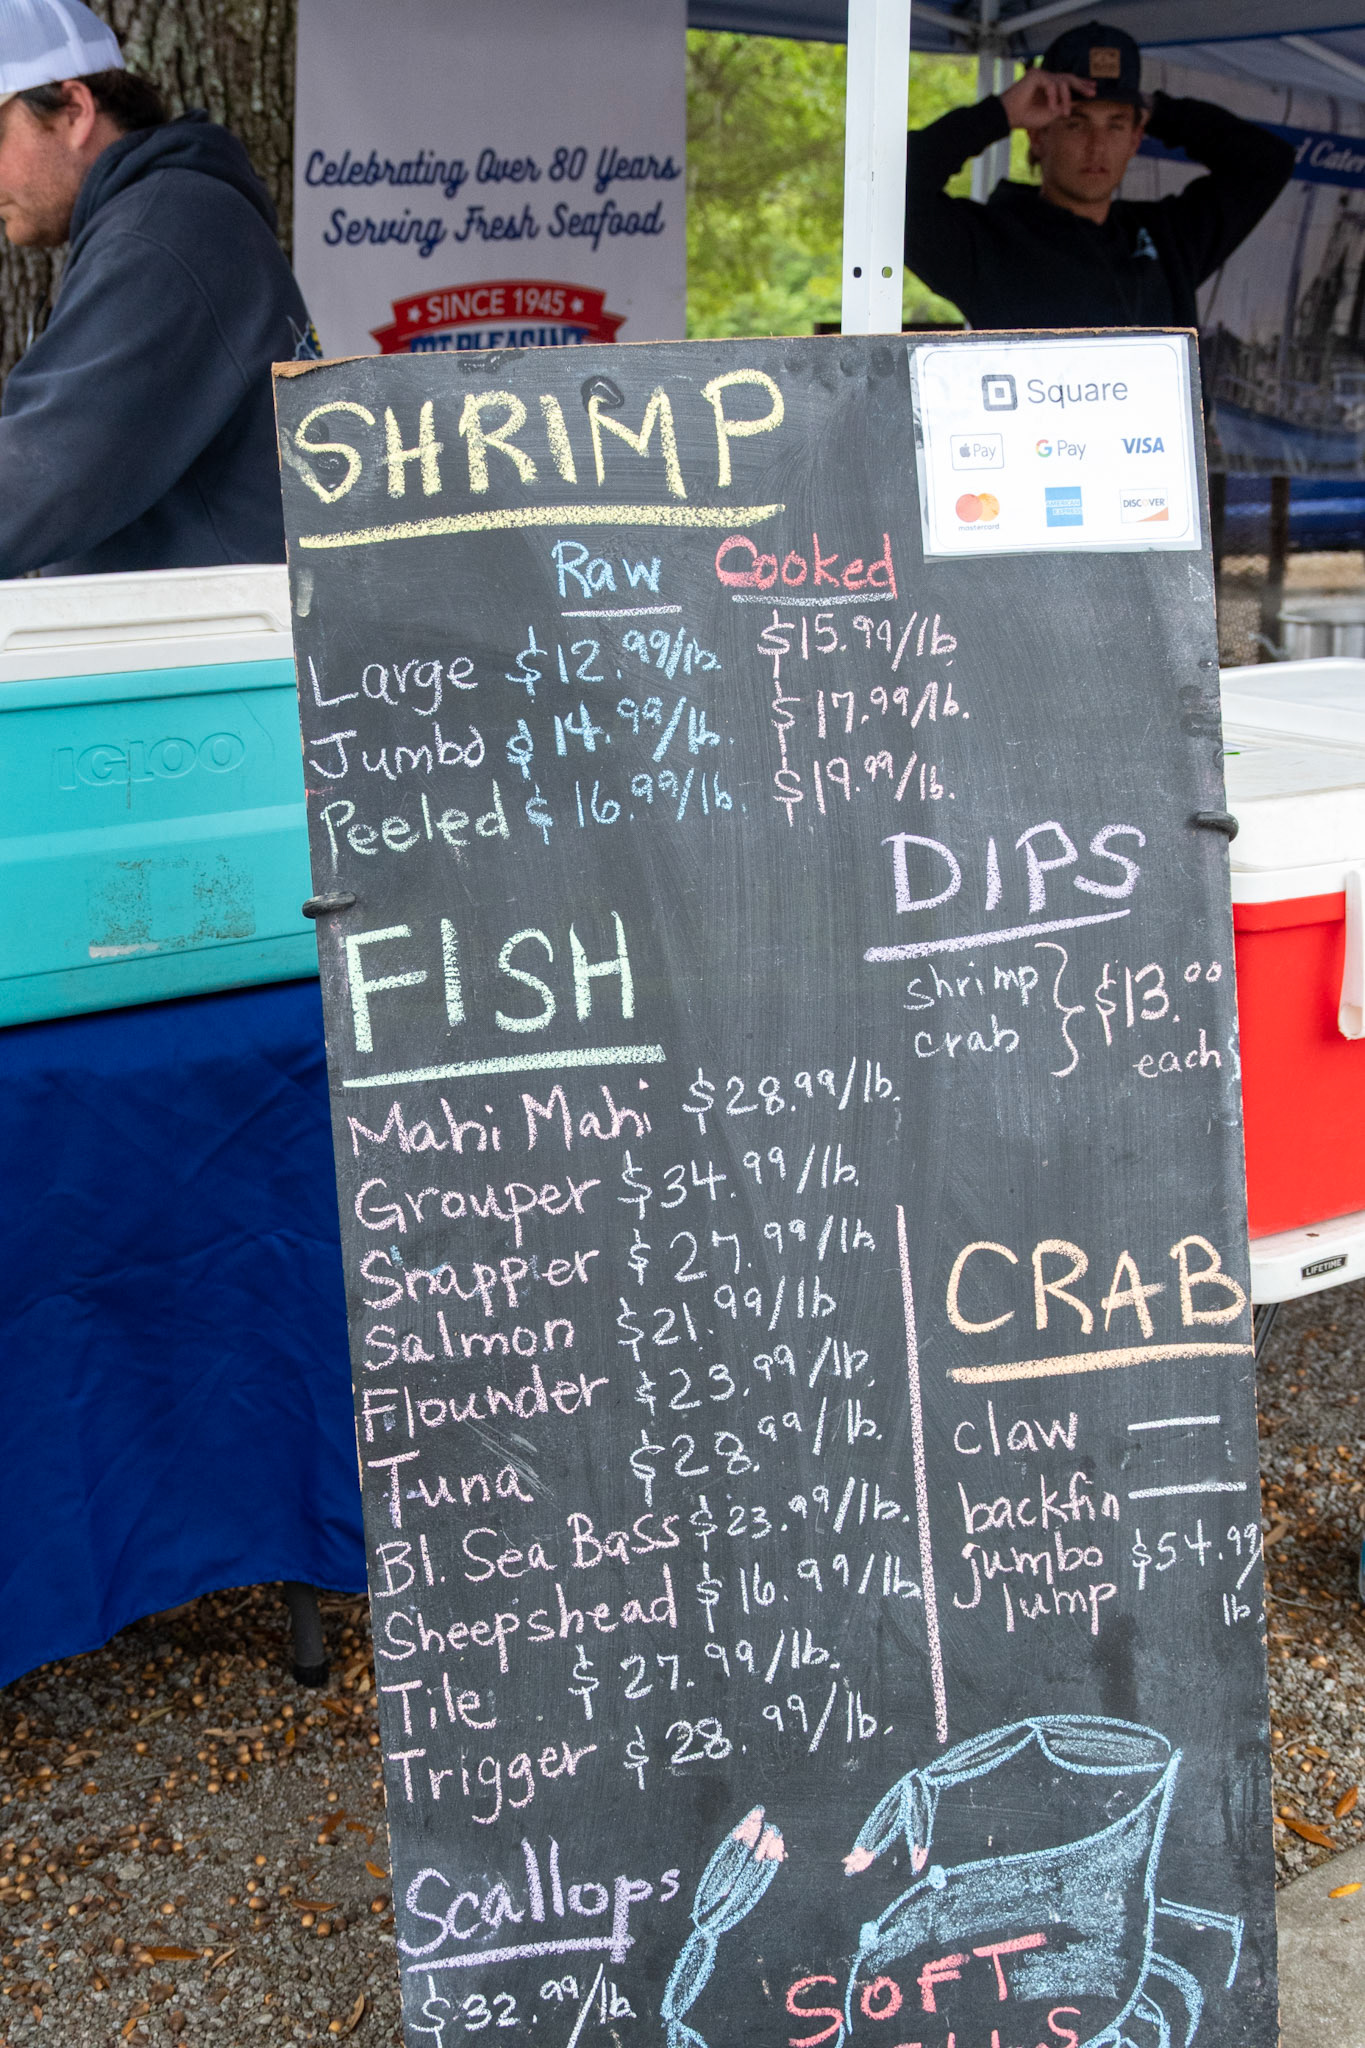 Celebrating Over 80 Years
Serving Fresh Seafood
SINCE 1945
MT PLEASANT
d Cater
Square
Pay
G Pay
VISA
mastercard
AMERICAN EXPRESS
DISCOVER
IGLOO
LIFETIME
SHRIMP
Raw Cooked
Large $12.99/lb. $15.99/lb.
Jumbo $14.99/lb. $17.99/lb.
Peeled $16.99/lb. $19.99/lb.
DIPS
shrimp
crab } $13.00
each
FISH
Mahi Mahi $28.99/lb.
Grouper $34.99/lb.
Snapper $27.99/lb.
Salmon $21.99/lb
Flounder $23.99/lb.
Tuna $28.99/lb.
Bl. Sea Bass $23.99/lb.
Sheepshead $16.99/lb.
Tile $27.99/lb.
Trigger $28.99/lb.
CRAB
claw —
backfin —
jumbo $54.99/
lump lb.
Scallops
$32.99/lb
SOFT